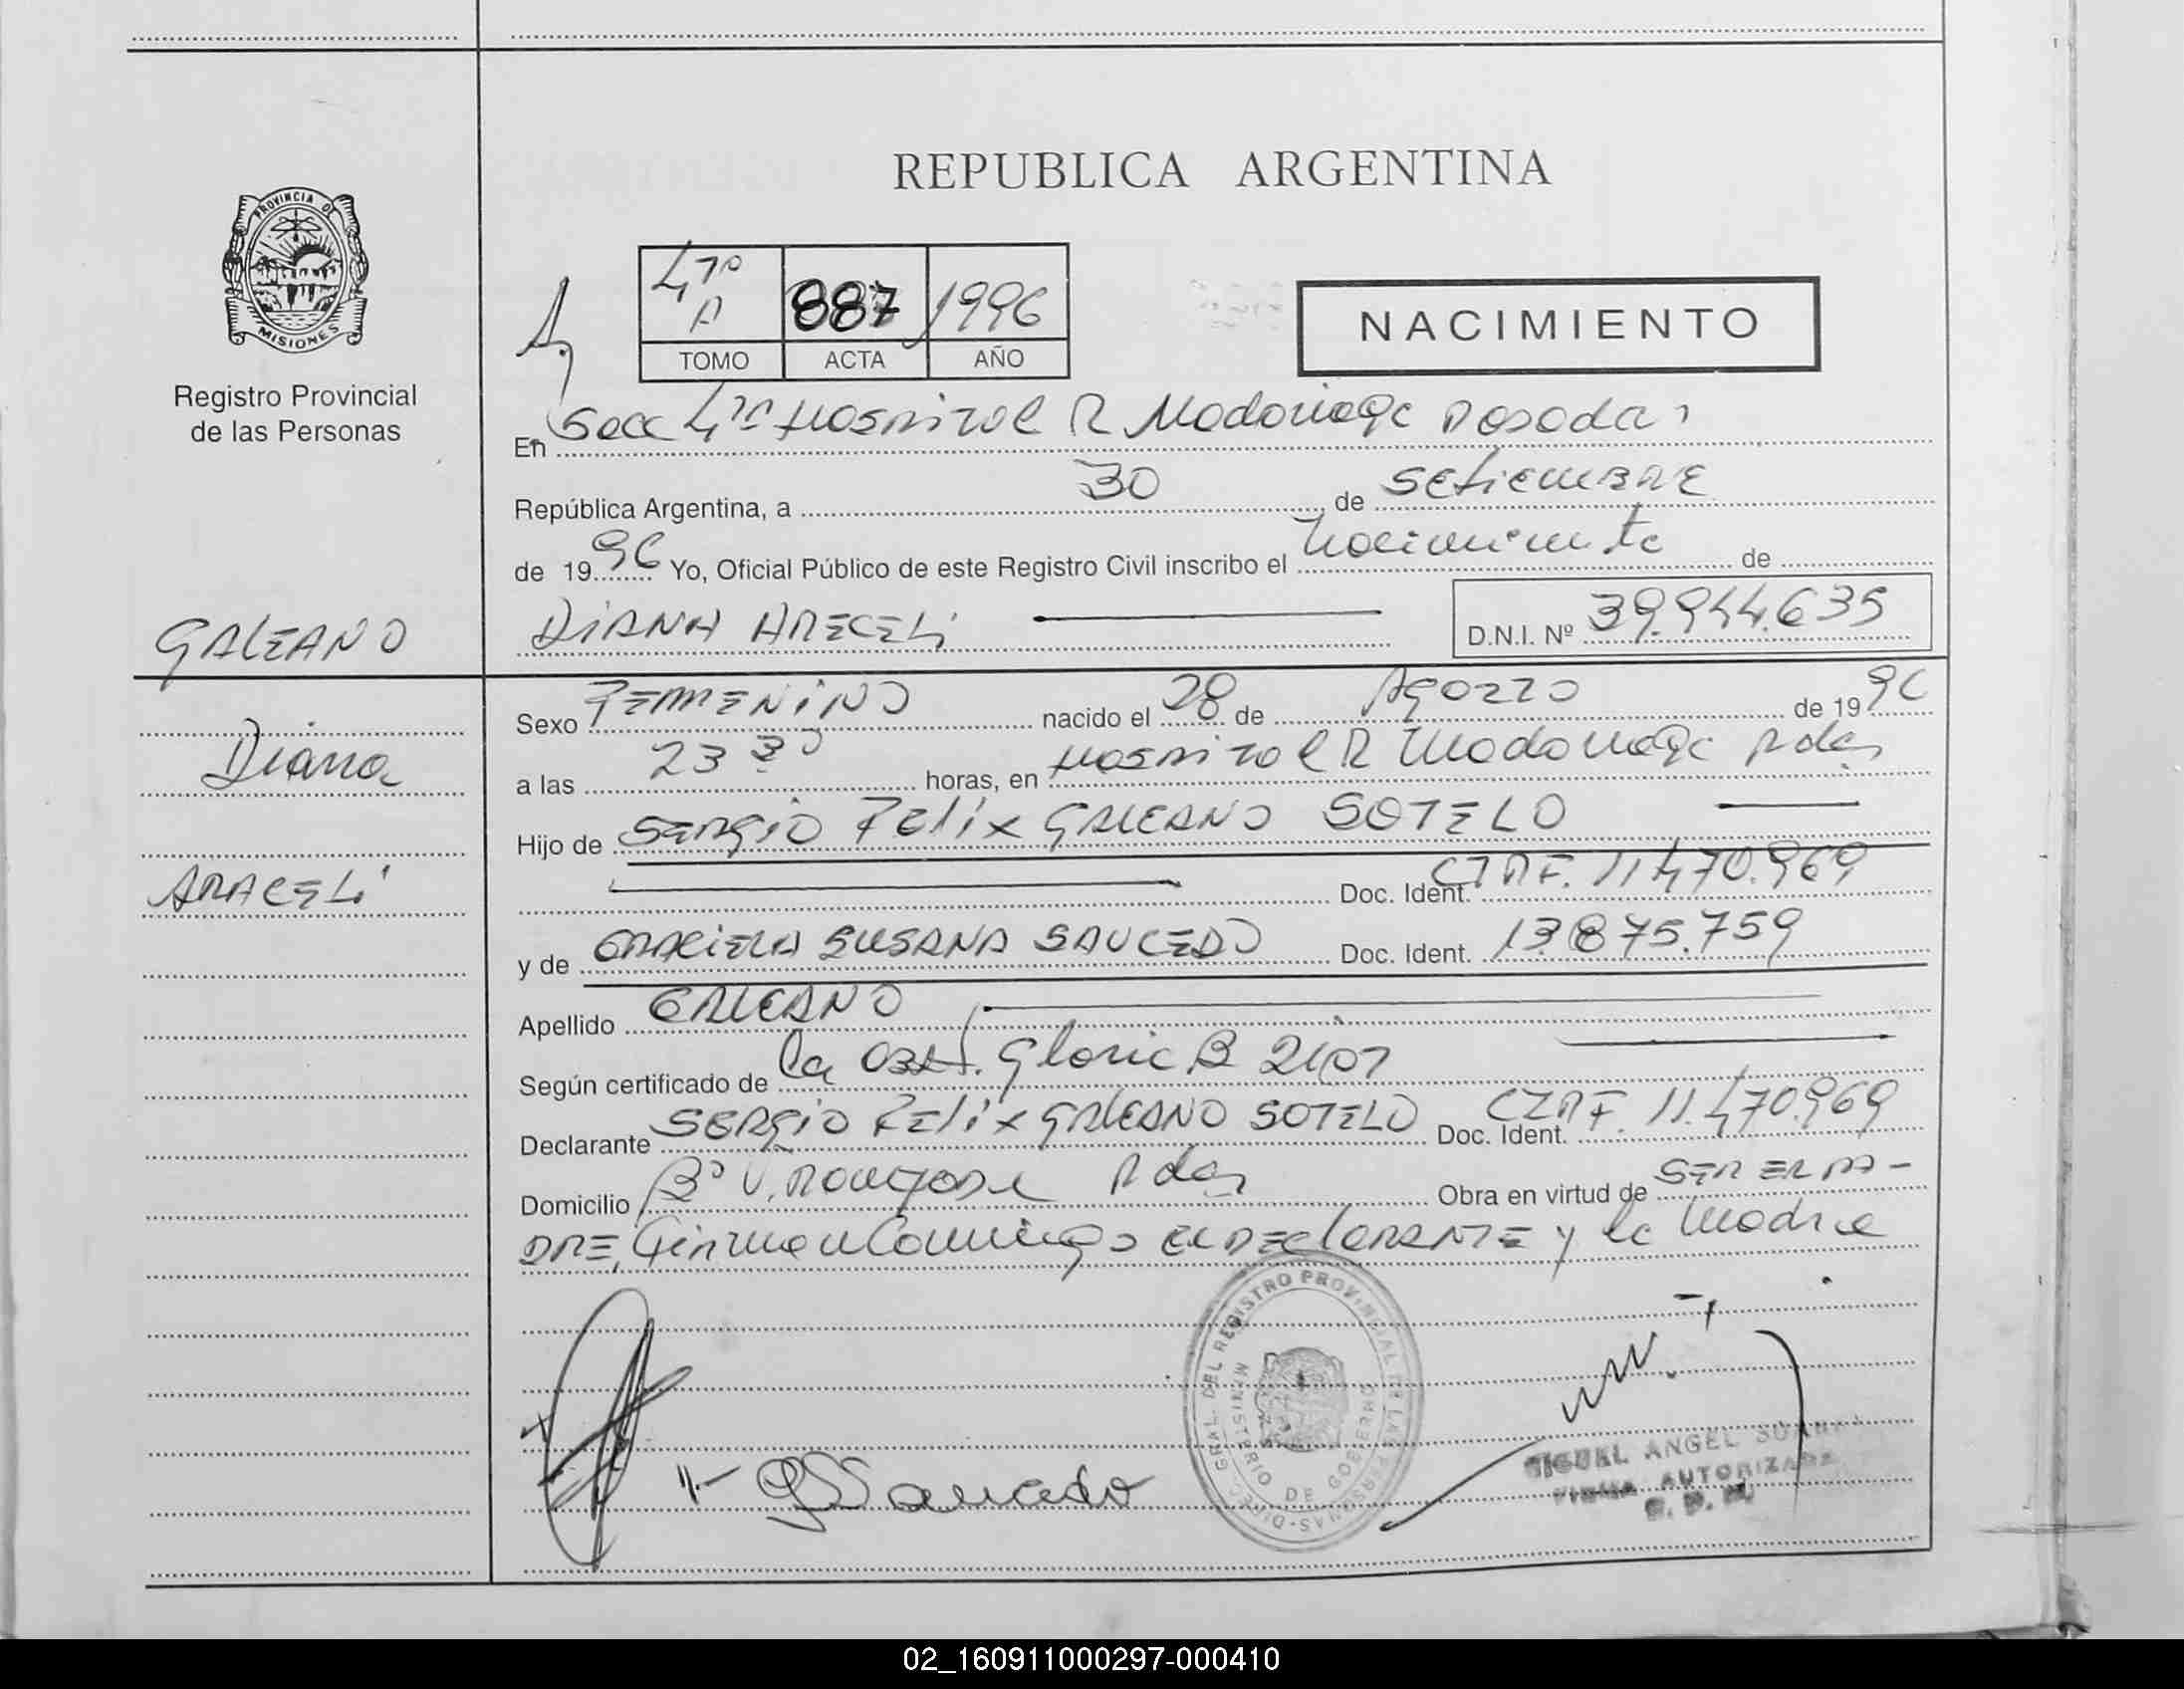 REPUBLICA ARGENTINA
PROVINCIA DE MISIONES
Registro Provincial
de las Personas
4ta A 887 1996
TOMO ACTA AÑO
NACIMIENTO
En Secc 4ta Hospital R Madariaga Posadas
República Argentina, a 30 de Setiembre
de 1996 Yo, Oficial Público de este Registro Civil inscribo el Nacimiento de
GALEANO
DIANA ARECELi
D.N.I. Nº 39.944.635
Diana
ARACELi
Sexo FEMENiNO nacido el 28 de AgOSTO de 1996
a las 23 30 horas, en Hospital R Madariaga Pdas
Hijo de SERgiO FElix GALEANO SOTELO
Doc. Ident. CIPF. 11.470.969
y de GRACiELA SUSANA SAUCEDO Doc. Ident. 13.875.759
Apellido GALEANO
Según certificado de la Obst. Gloria B
Declarante SERgiO FEliX GALEANO SOTELO Doc. Ident. CIPF. 11.470.969
Domicilio Bº Pdas Obra en virtud de SER EL PA-
DRE, Firman Conmigo El DEClARANTE y la Madre
GSSaucedo
DIREC. GRAL. DEL REGISTRO PROVINCIAL DE LAS PERSONAS
MINISTERIO DE GOBIERNO
MIGUEL ANGEL
FIRMA AUTORIZADA
02_160911000297-000410